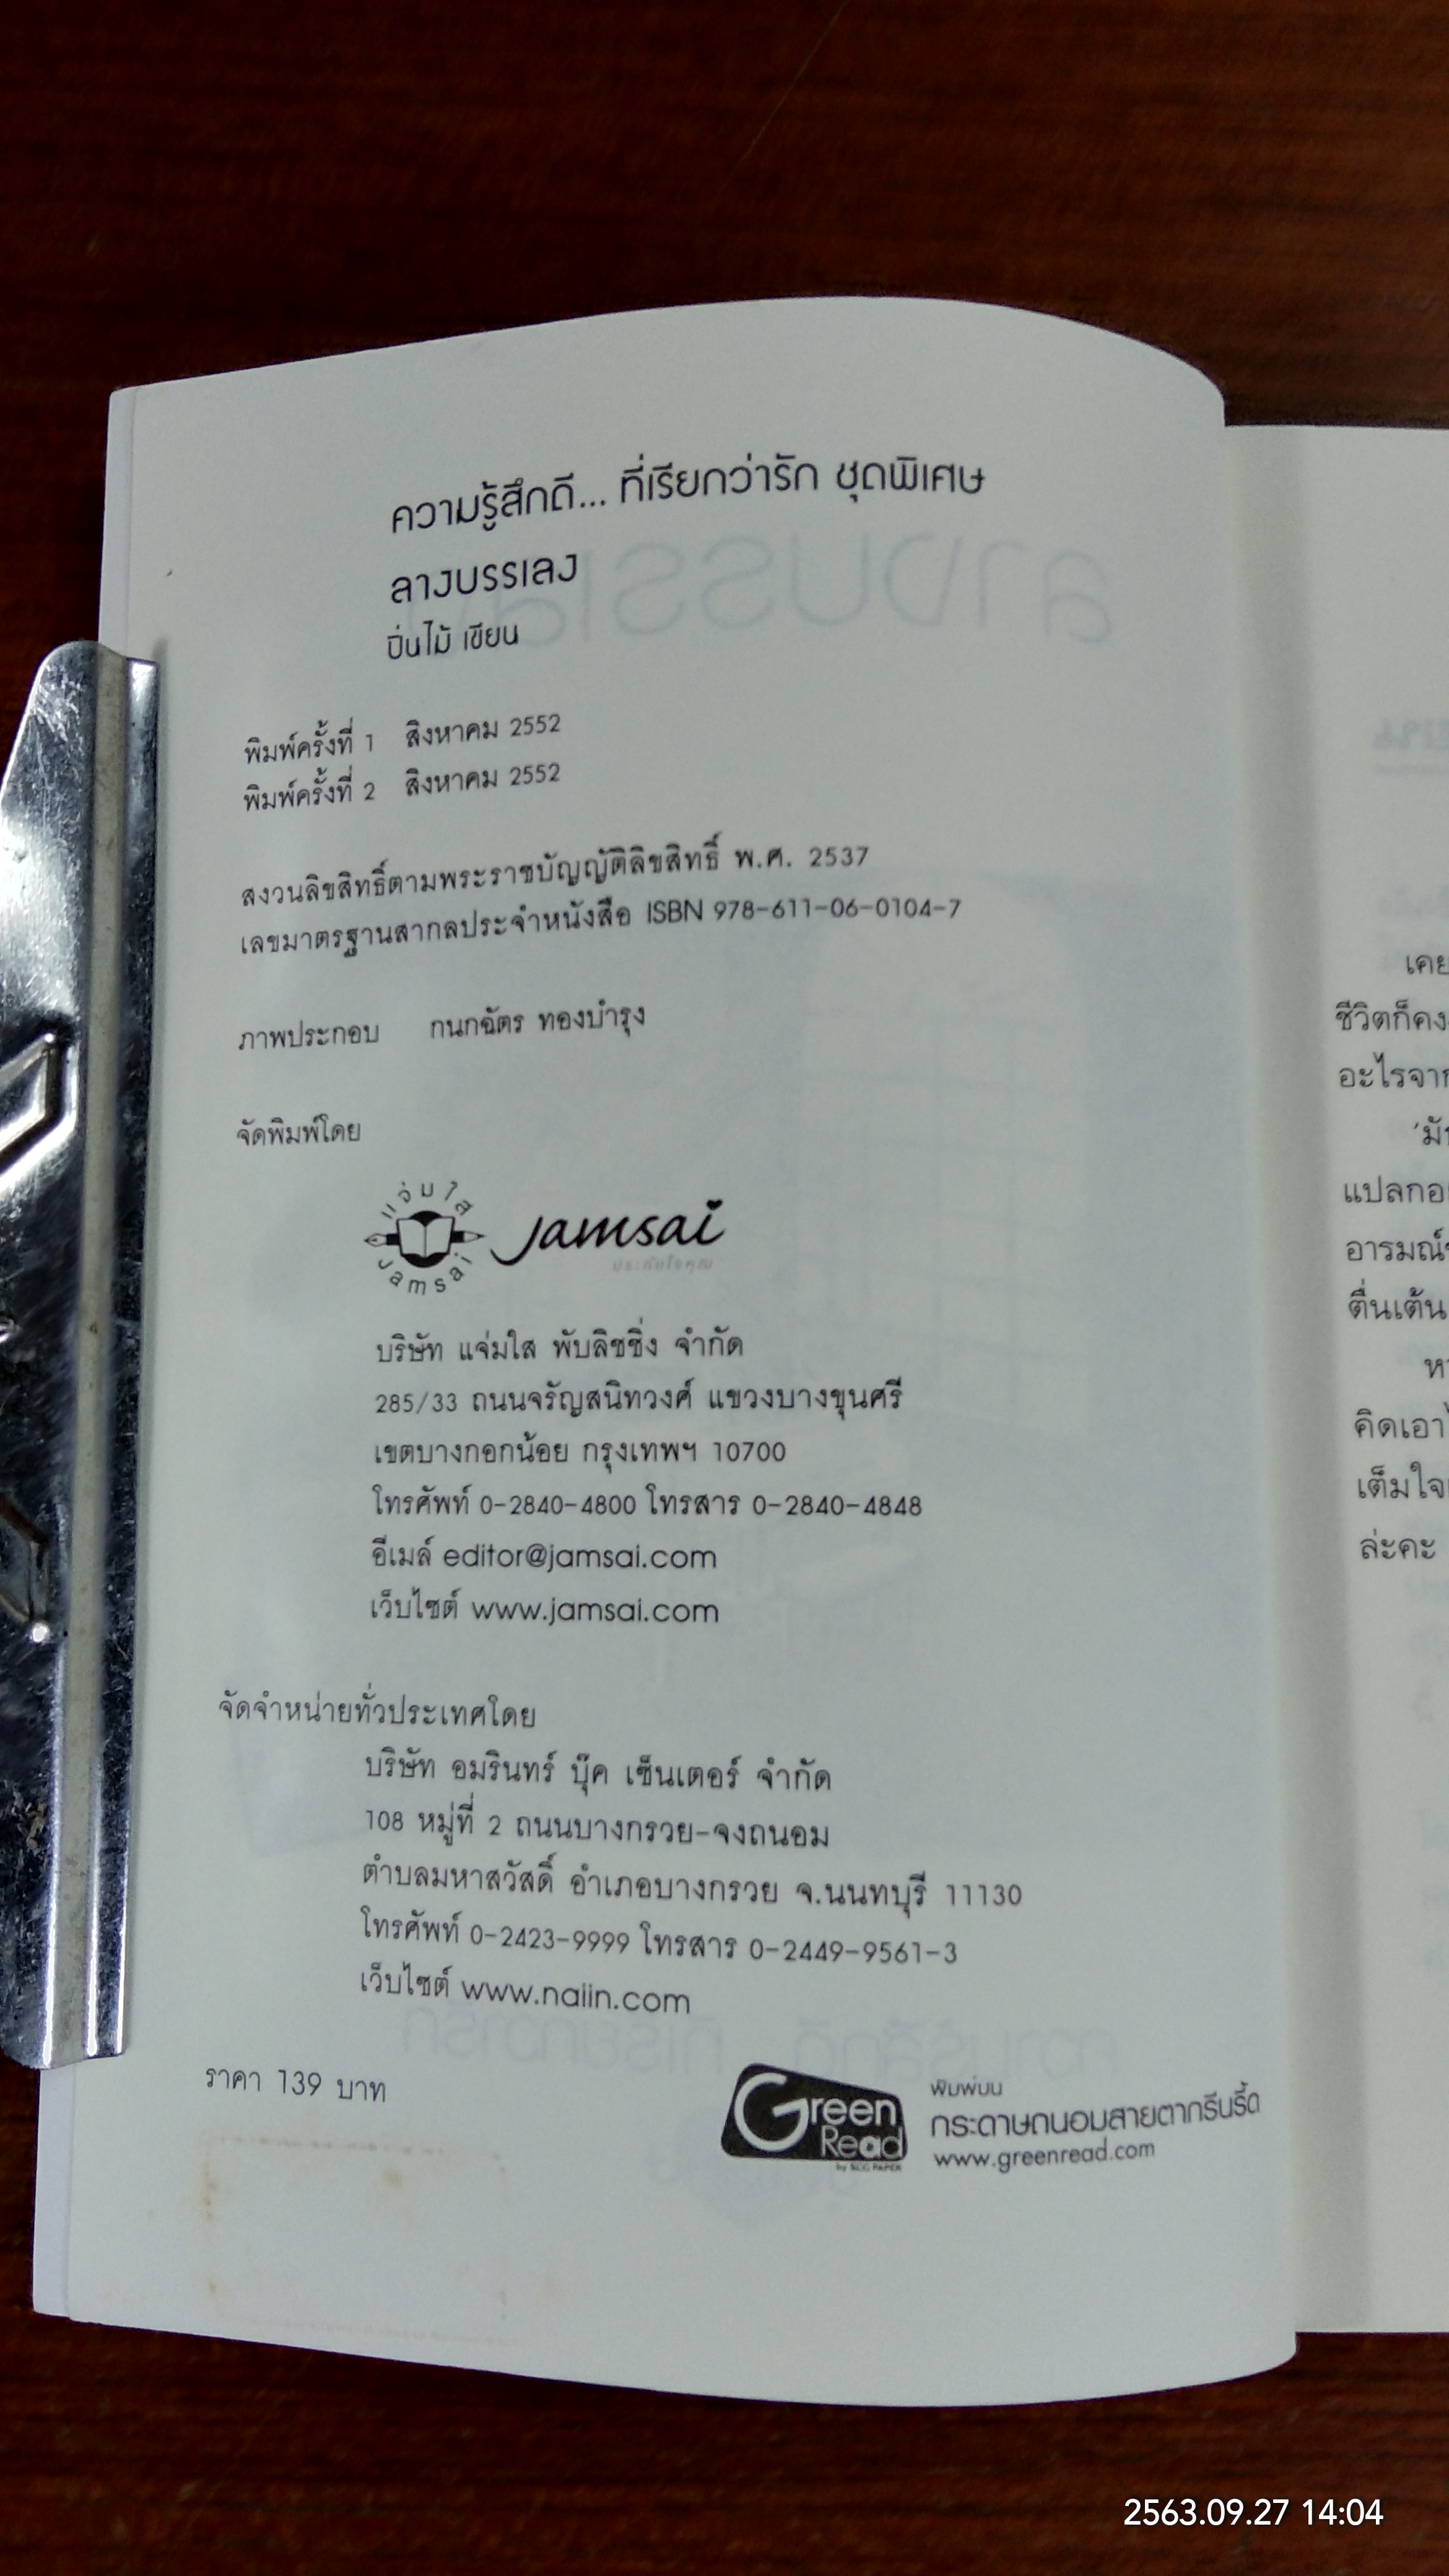 ความรู้สึกดี... ที่เรียกว่ารัก ชุดพิเศษ
ลางบรรเลง
ปิ่นไม้ เขียน
พิมพ์ครั้งที่ 1 สิงหาคม 2552
พิมพ์ครั้งที่ 2 สิงหาคม 2552
สงวนลิขสิทธิ์ตามพระราชบัญญัติลิขสิทธิ์ พ.ศ. 2537
เลขมาตรฐานสากลประจำหนังสือ ISBN 978-611-06-0104-7
ภาพประกอบ กนกฉัตร ทองบำรุง
จัดพิมพ์โดย
แจ่มใส
Jamsai
Jamsai
บริษัท แจ่มใส พับลิชชิ่ง จำกัด
285/33 ถนนจรัญสนิทวงศ์ แขวงบางขุนศรี
เขตบางกอกน้อย กรุงเทพฯ 10700
โทรศัพท์ 0-2840-4800 โทรสาร 0-2840-4848
อีเมล์ editor@jamsai.com
เว็บไซต์ www.jamsai.com
จัดจำหน่ายทั่วประเทศโดย
บริษัท อมรินทร์ บุ๊ค เซ็นเตอร์ จำกัด
108 หมู่ที่ 2 ถนนบางกรวย-จงถนอม
ตำบลมหาสวัสดิ์ อำเภอบางกรวย จ.นนทบุรี 11130
โทรศัพท์ 0-2423-9999 โทรสาร 0-2449-9561-3
เว็บไซต์ www.naiin.com
ราคา 139 บาท
Green Read
by SCG PAPER
พิมพ์บน
กระดาษถนอมสายตากรีนรี้ด
www.greenread.com
เคย
ชีวิตก็คง
อะไรจาก
'มัน
แปลกอ
อารมณ์
ตื่นเต้น
ห
คิดเอา
เต็มใจ
ล่ะคะ
2563.09.27 14:04